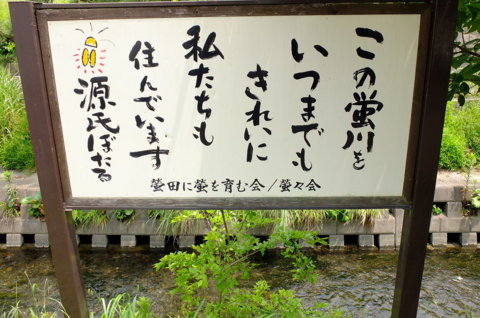 この螢川を
いつまでも
きれいに
私たちも
住んでいます
源氏ぼたる
螢田に螢を育む会/螢々会